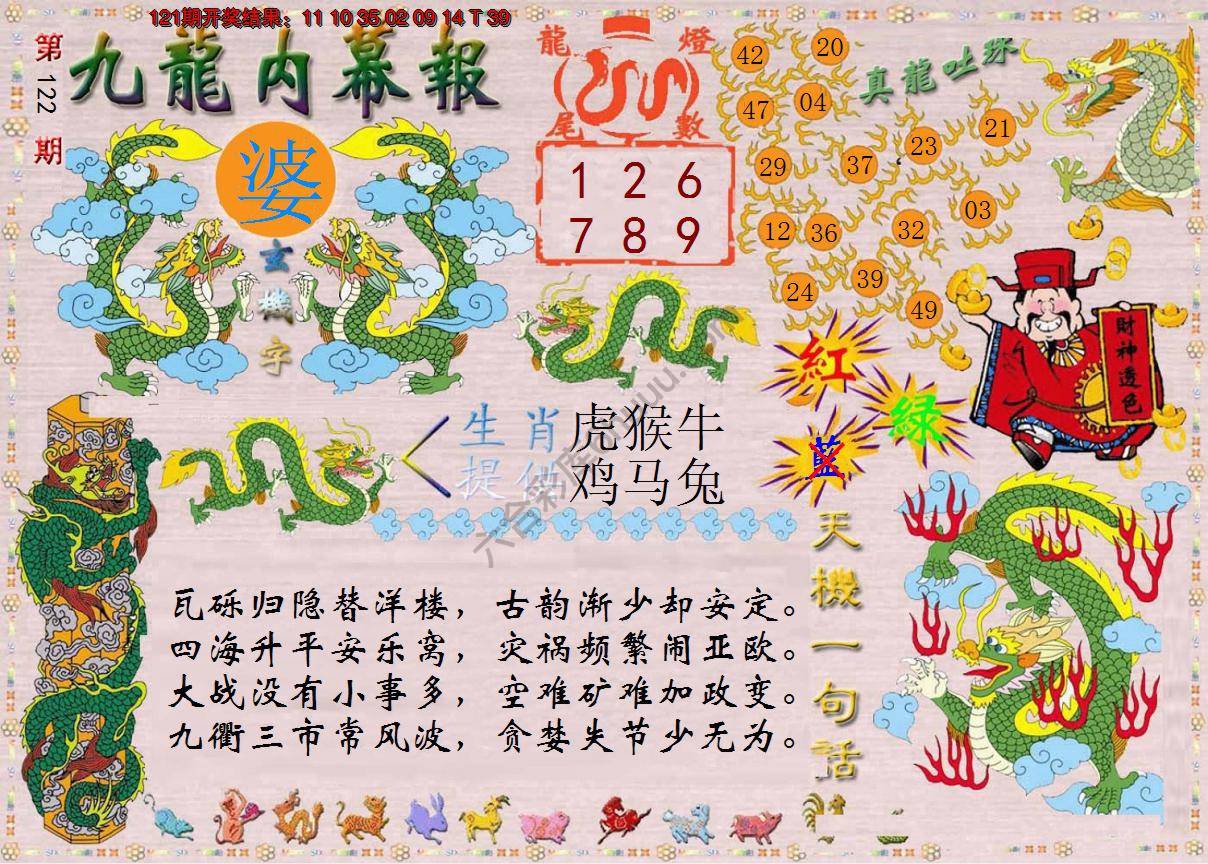 121期开奖结果：11 10 35 02 09 14 T 39
第122期
九龍内幕報
婆
玄機字
龍燈
尾數
1 2 6
7 8 9
真龍吐珠
42 20
47 04
29 37 23 21
12 36 32 03
24 39 49
財神透色
紅
綠
藍
生肖 虎猴牛
提供 鸡马兔
六合彩
天機一句話
瓦砾归隐替洋楼，古韵渐少却安定。
四海升平安乐窝，灾祸频繁闹亚欧。
大战没有小事多，空难矿难加政变。
九衢三市常风波，贪婪失节少无为。